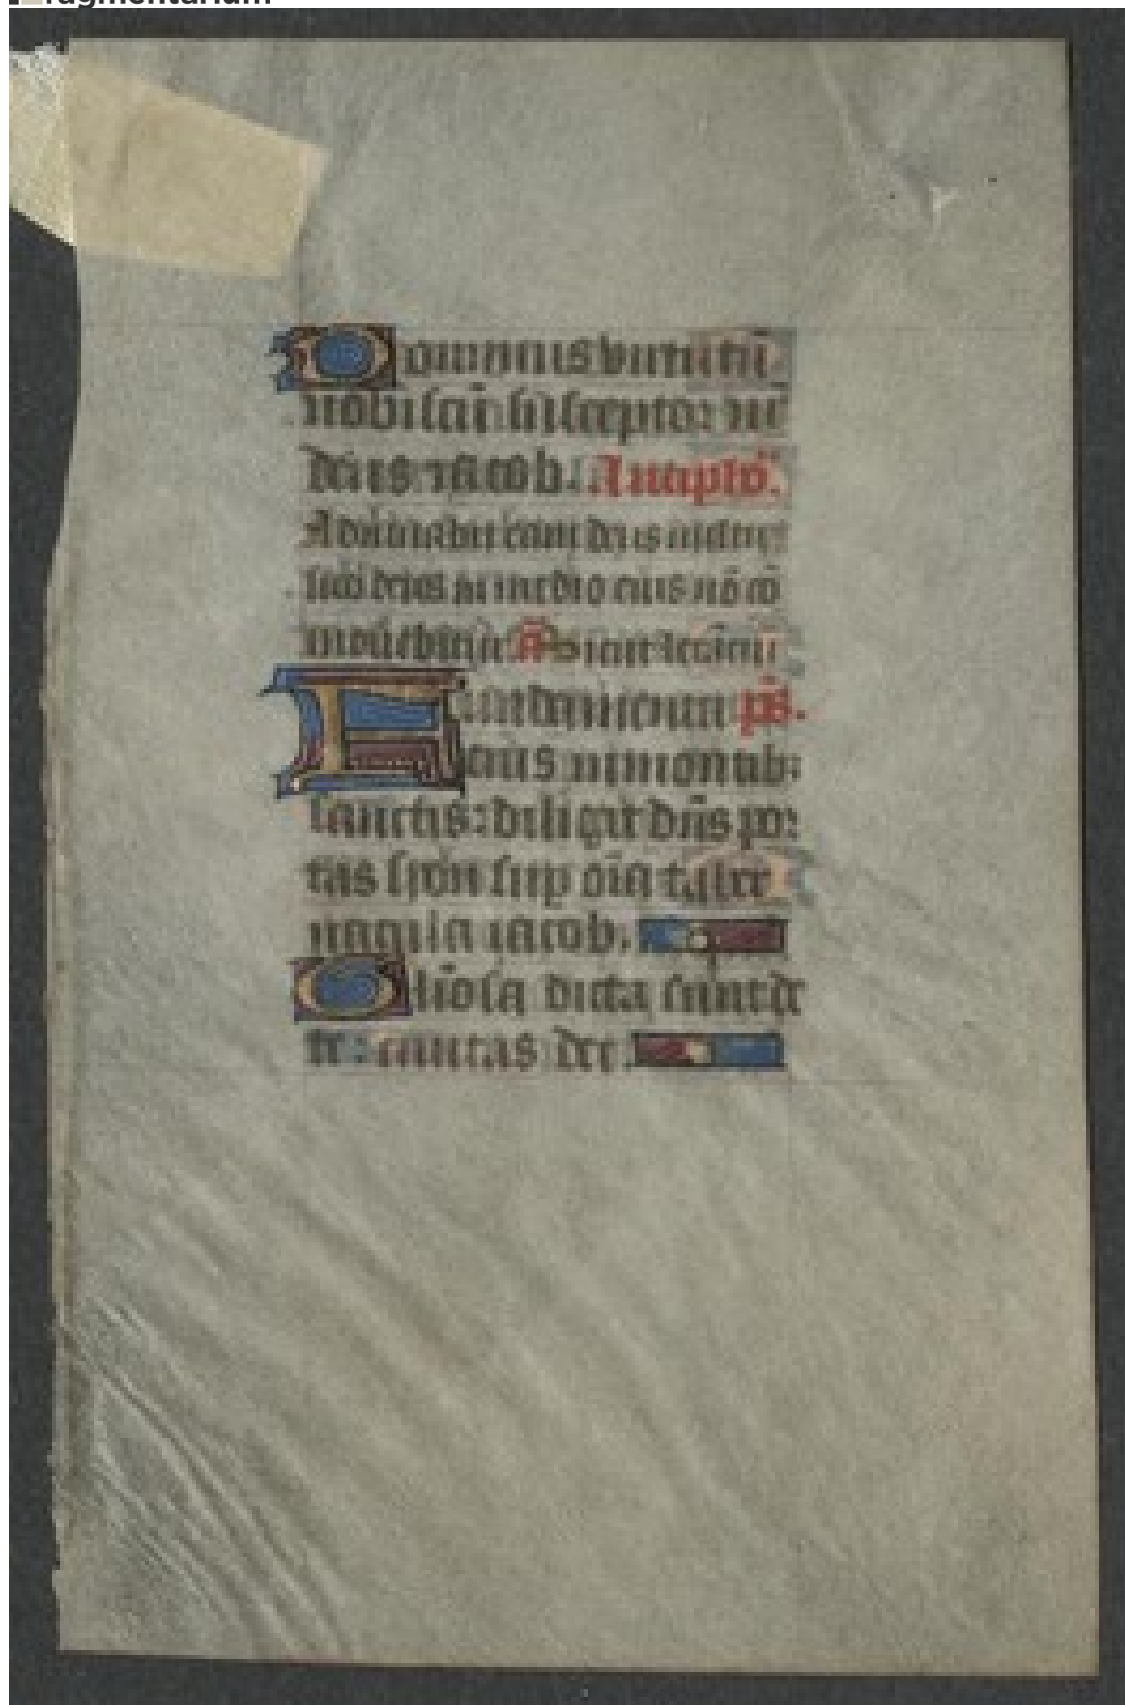 fragmentarium
Dominus virtutū
nobiscū susceptor nr̄
deus iacob. Ana pło.
Adiuuabit eam deus uultu
suo deus in medio eius nō cō
mouebitur An̄ Sicut letāciū
Fundamenta ps̄.
eius in montib:
sanctis: diligit dn̄s por
tas syon sup om̄ia taber
nacula iacob.
Gliōsa dicta sunt de
te: ciuitas dei.